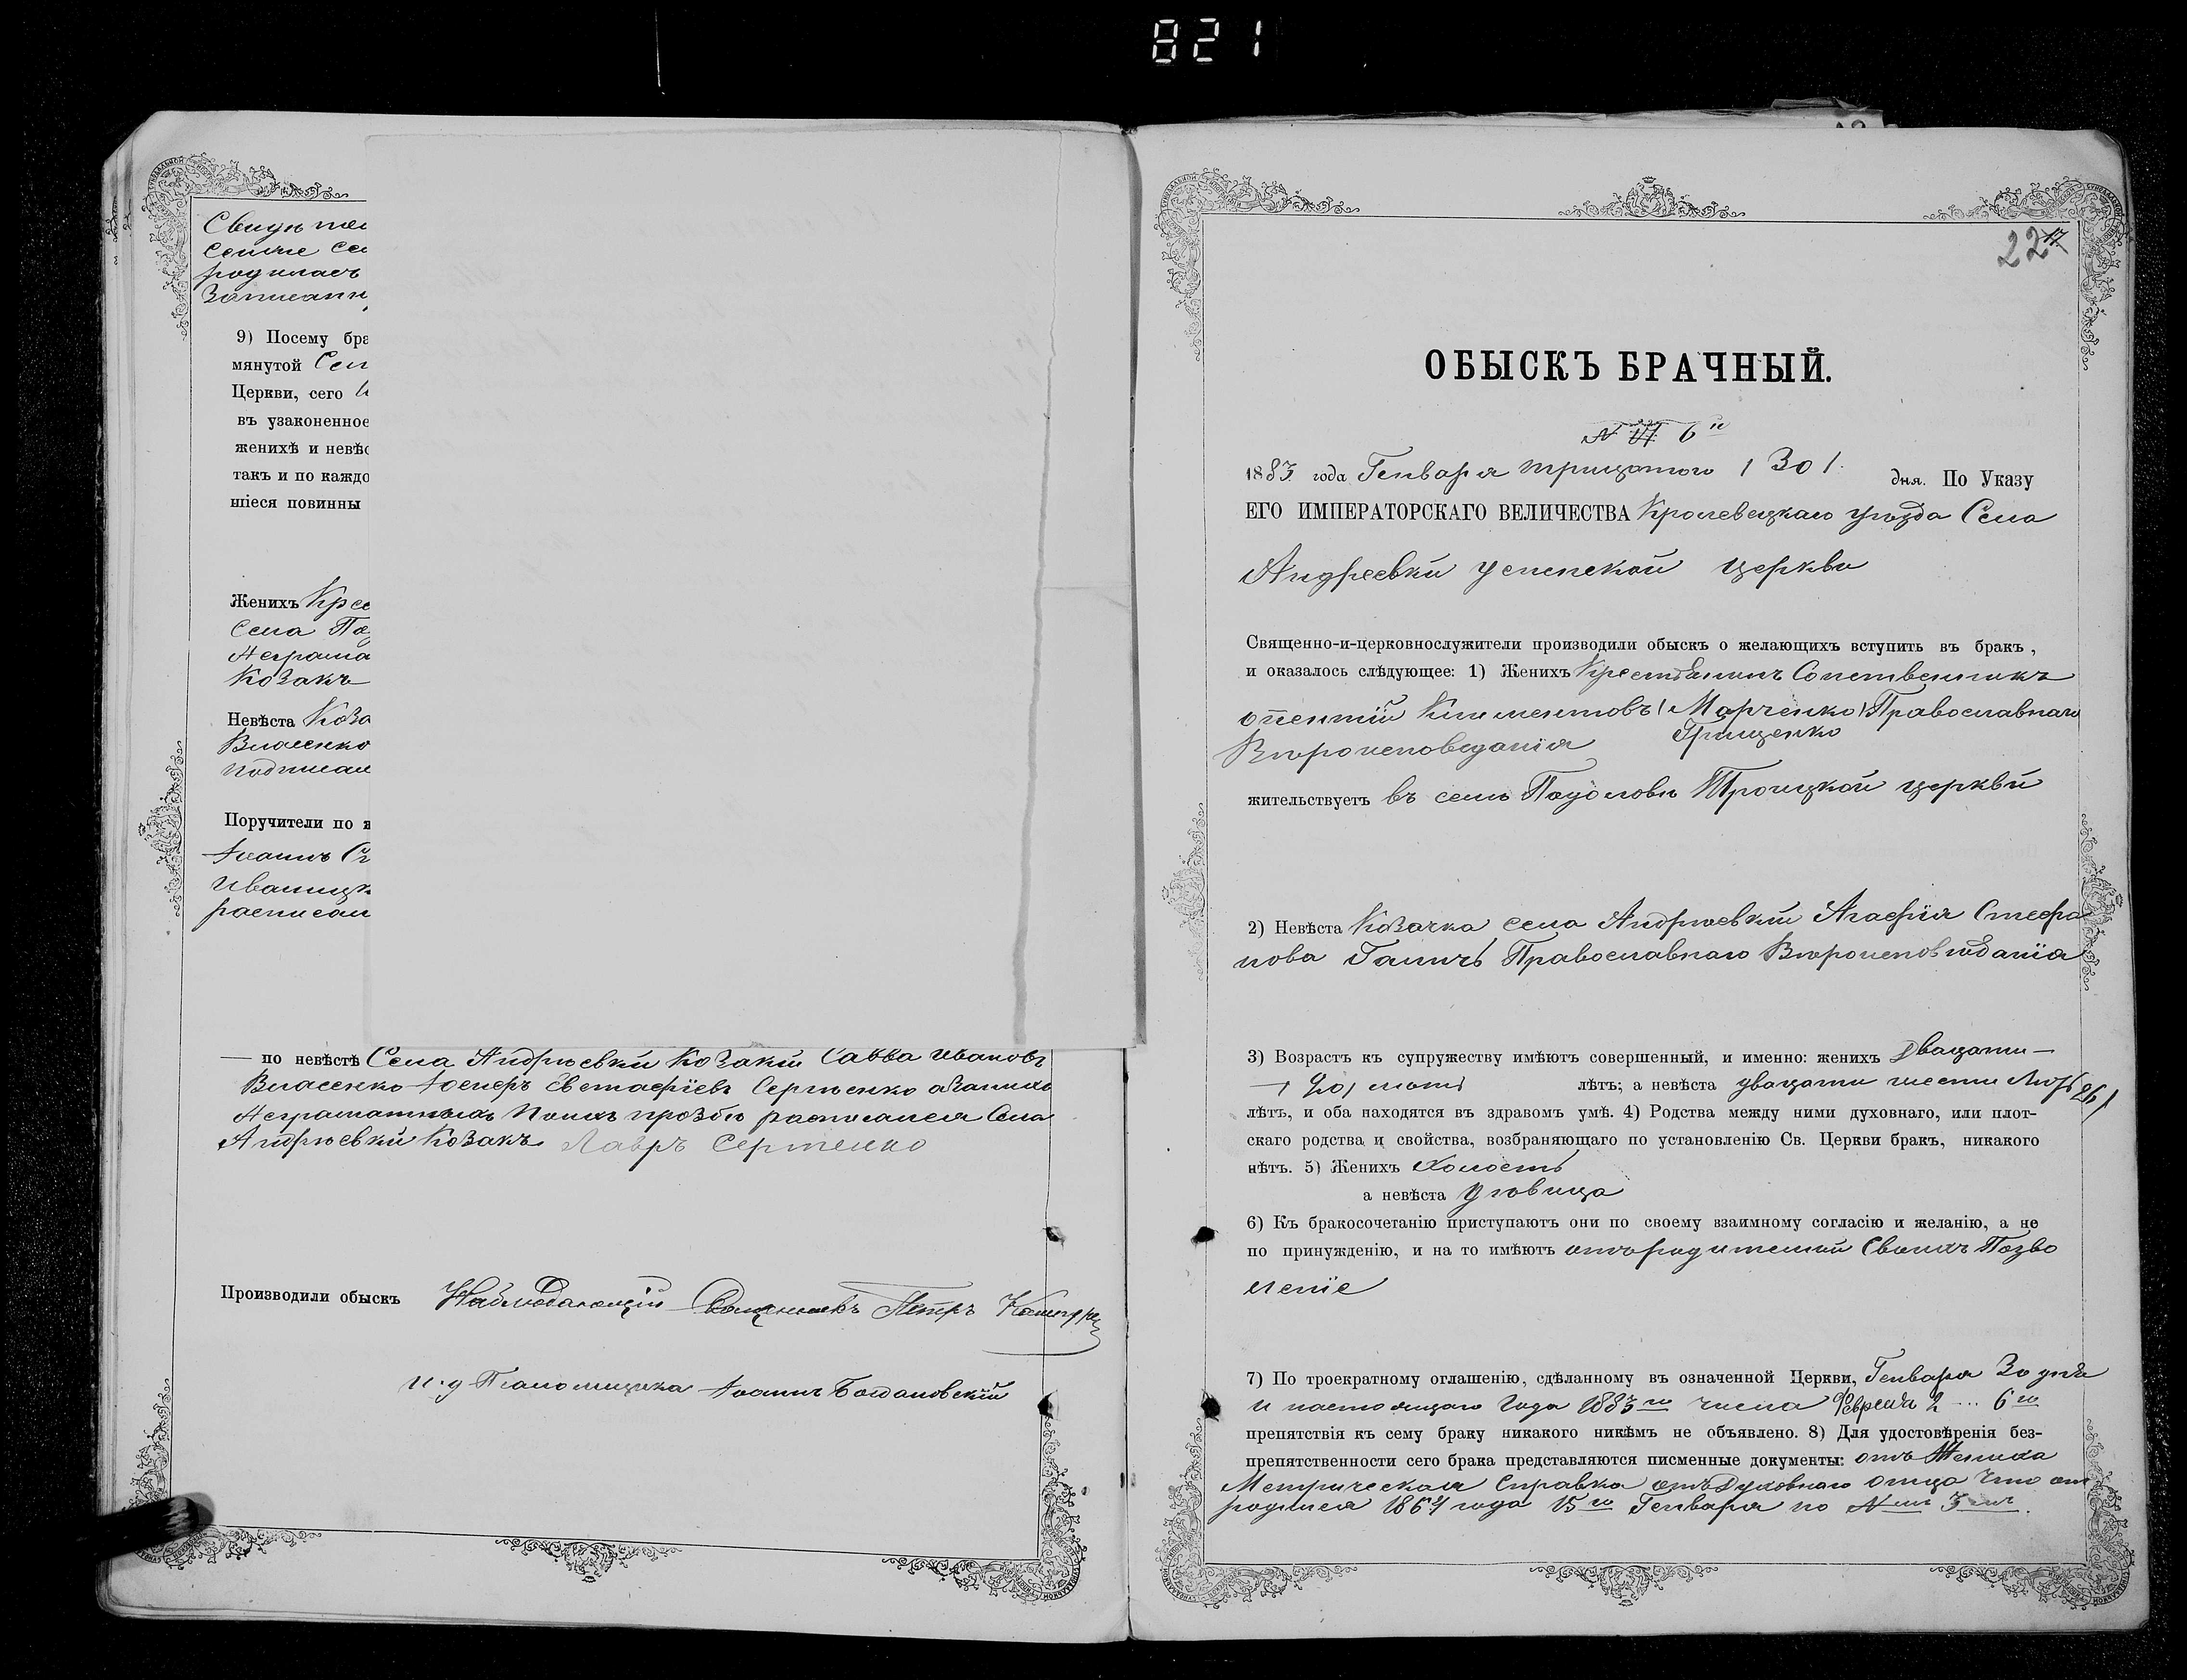 821
Свидѣтел
Селие се
родилась
Записанн
9) Посему бра
мянутой Сел
Церкви, сего
въ узаконенное
женихѣ и невѣс
такъ и по каждо
шіеся повинны
Женихъ Крес
села По
Неграма
Козакъ
Невѣста Коза
Власенко
подписал
Поручители по ж
Іоаннъ
Иваницк
расписал
— по невѣстѣ Села Андрѣевки Козаки Савва Ивановъ
Власенко Іосифъ Евстафіевъ Сергѣенко а за нихъ
Неграмотныхъ по ихъ прозбѣ расписался Села
Андрѣевки Козакъ Лавръ Сергѣенко
Производили обыскъ Наблюдающій Священникъ Петръ
И. д Псаломщика Іоаннъ Богдановскій
22 17
ОБЫСКЪ БРАЧНЫЙ.
№ 6й
1883 года Генваря тридцатого / 30 /. дня. По Указу
ЕГО ИМПЕРАТОРСКАГО ВЕЛИЧЕСТВА Кролевецкаго уѣзда Села
Андреевки Успенской церкви
Священно-и-церковнослужители производили обыскъ о желающихъ вступить въ бракъ,
и оказалось слѣдующее: 1) Женихъ Крестьянинъ Сопственникъ
Климентовъ / Марченко / Православнаго
Грищенко
Вѣроисповеданія
жительствуетъ въ селѣ Подоловѣ Троицкой церкви
2) Невѣста Козачка села Андрѣевки Агафія Стефа
нова Галичъ Православнаго Вѣроисповѣданія
3) Возрастъ къ супружеству имѣютъ совершенный, и именно: женихъ Двадцати —
/ 20 / лѣтъ лѣтъ; а невѣста двадцати шести Лѣтъ / 26 /
лѣтъ, и оба находятся въ здравомъ умѣ. 4) Родства между ними духовнаго, или плот-
скаго родства и свойства, возбраняющаго по установленію Св. Церкви бракъ, никакого
нѣтъ. 5) Женихъ Холостъ
а невѣста дѣвица
6) Къ бракосочетанію приступаютъ они по своему взаимному согласію и желанію, а не
по принужденію, и на то имѣютъ отъ родителей Своихъ Позво
леніе
7) По троекратному оглашенію, сдѣланному въ означенной Церкви, Генваря 30 дня
и настоящаго Года 1883го числа Февраля 2 ... 6го
препятствія къ сему браку никакого никѣмъ не объявлено. 8) Для удостовѣренія без-
препятственности сего брака представляются писменные документы: отъ Жениха
Метрическая Справка отъ Духовнаго отца Что он
родился 186 года 15го Генваря по №мъ 3мъ.